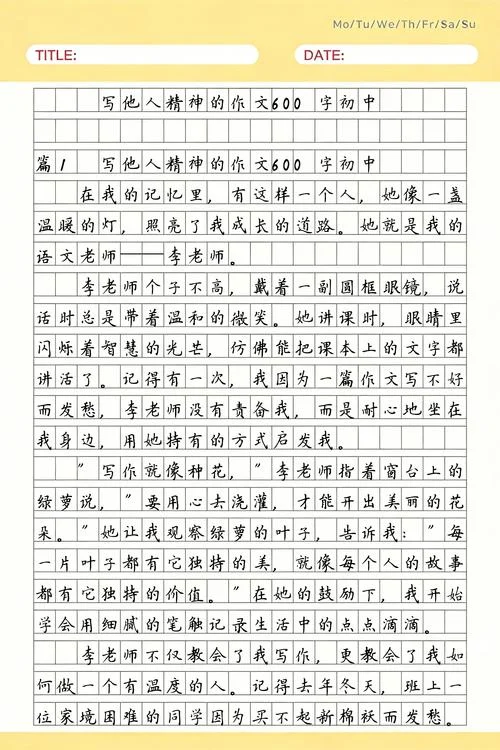 Mo/Tu/We/Th/Fr/Sa/Su
TITLE:
DATE:
写他人精神的作文600 字初中
篇1 写他人精神的作文600 字初中
在我的记忆里，有这样一个人，她像一盏
温暖的灯，照亮了我成长的道路。她就是我的
语文老师——李老师。
李老师个子不高，戴着一副圆框眼镜，说
话时总是带着温和的微笑。她讲课时，眼睛里
闪烁着智慧的光芒，仿佛能把课本上的文字都
讲活了。记得有一次，我因为一篇作文写不好
而发愁，李老师没有责备我，而是耐心地坐在
我身边，用她特有的方式启发我。
"写作就像种花，"李老师指着窗台上的
绿萝说，"要用心去浇灌，才能开出美丽的花
朵。"她让我观察绿萝的叶子，告诉我："每
一片叶子都有它独特的美，就像每个人的故事
都有它独特的价值。"在她的鼓励下，我开始
学会用细腻的笔触记录生活中的点点滴滴。
李老师不仅教会了我写作，更教会了我如
何做一个有温度的人。记得去年冬天，班上一
位家境困难的同学因为买不起新棉袄而发愁。